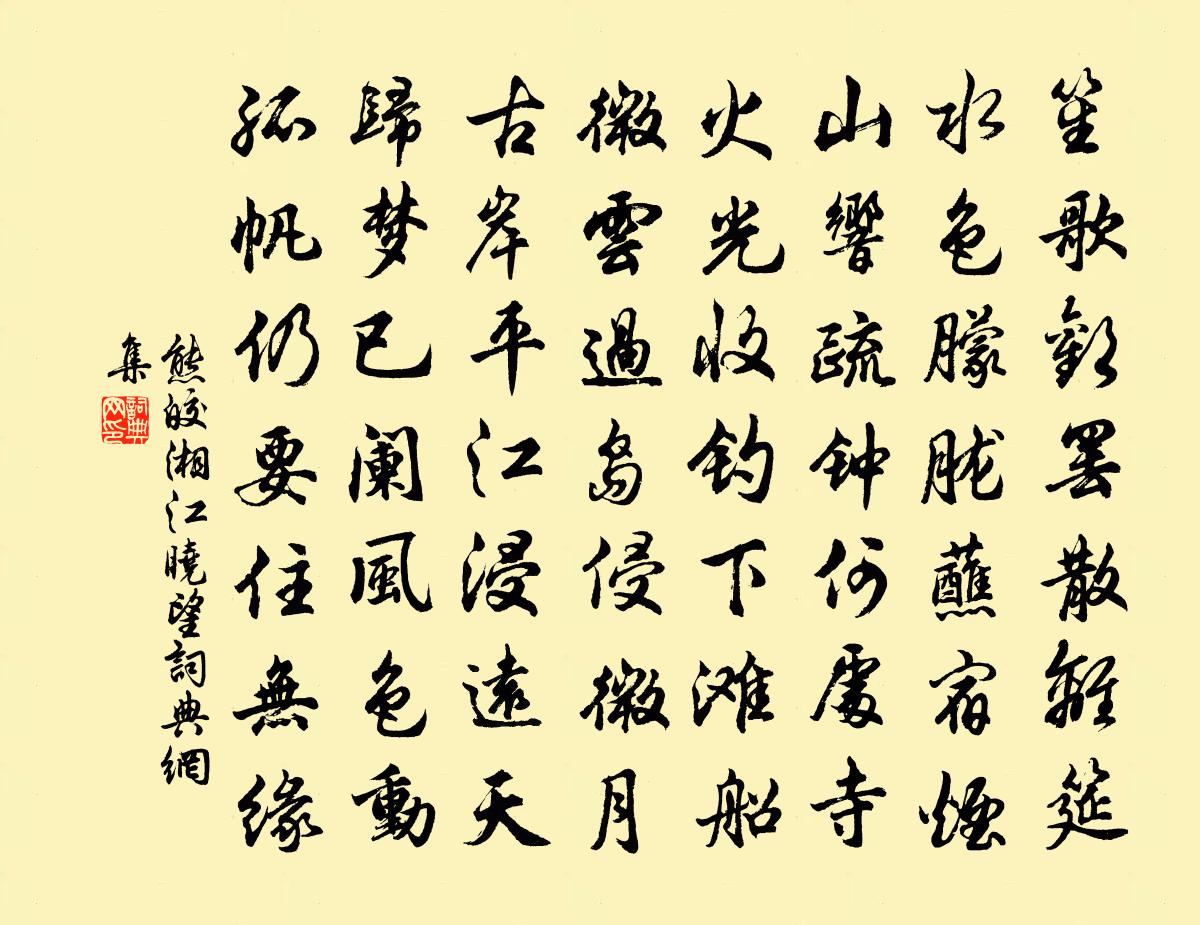 笙歌歡罢散離筵
水色朦朧蘸宿煙
山響疏钟何處寺
火光收钓下滩船
微雲過岛侵微月
古岸平江浸遠天
歸梦已阑風色動
孤帆仍要住無缘
熊皎湘江曉望詞典網
集
詞典
网印